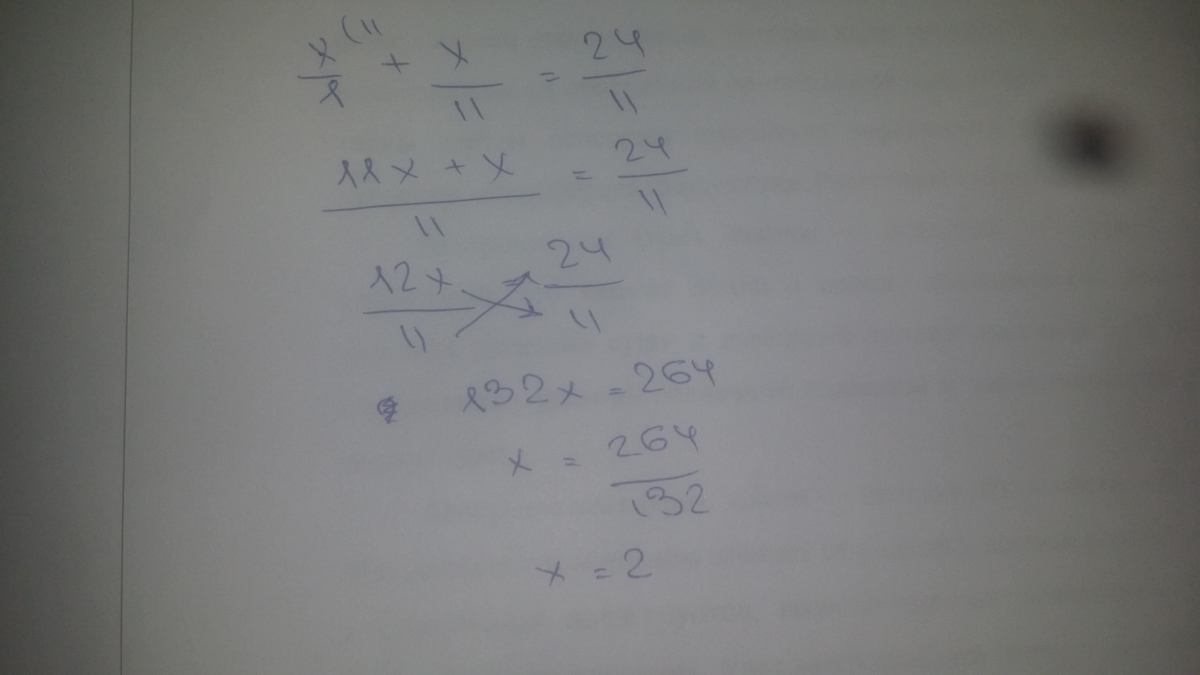 x/1 (11 + x/11 = 24/11
11x + x/11 = 24/11
12x/11 = 24/11
132x = 264
x = 264/132
x = 2